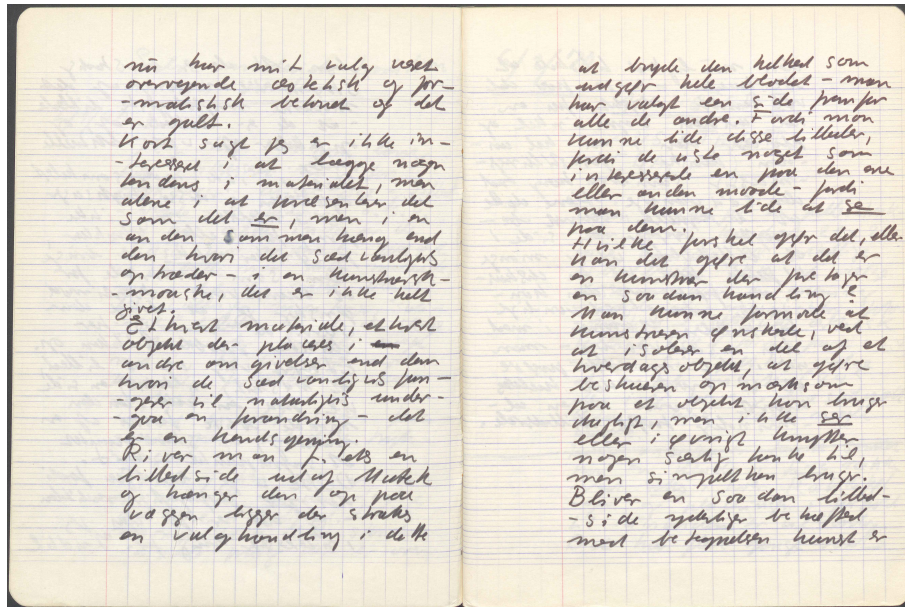 nu har mit valg været
overvejende æstetisk og for-
-malistisk betonet og det
er galt.
Kort sagt jeg er ikke in-
-teresseret i at lægge nogen
tendens i materialet, men
alene i at præsentere det
som det er, men i en
anden sammenhæng end
den hvori det sædvanligvis
optræder - i en kunstnerisk-
-maaske, det er ikke helt
givet.
Ethvert materiale, ethvert
objekt der placeres i
andre omgivelser end dem
hvori de sædvanligvis fun-
-gerer vil naturligvis under-
-gaa en forandring - det
er en kendsgerning.
River man f. eks en
billedside ud af
og hænger den op paa
væggen ligger der straks
en valghandling i dette
at bryde den helhed som
udgør hele bladet - man
har valgt een side fremfor
alle de andre. Fordi man
kunne lide disse billeder,
fordi de viste noget som
interesserede en paa den ene
eller anden maade - fordi
man kunne lide at se
paa dem.
Hvilke forskel gør det, eller
kan det gøre at det er
en kunstner der foretager
en saadan handling?
Man kunne formode at
kunstneren ønskede, ved
at isolere en del af et
hverdagsobjekt, at gøre
beskueren opmærksom
paa et objekt han bruger
dagligt, men ikke ser
eller iøvrigt knytter
nogen særlig tanke til,
men simpelthen bruger.
Bliver en saadan billed-
-side yderligere behæftet
med betegnelsen kunst er